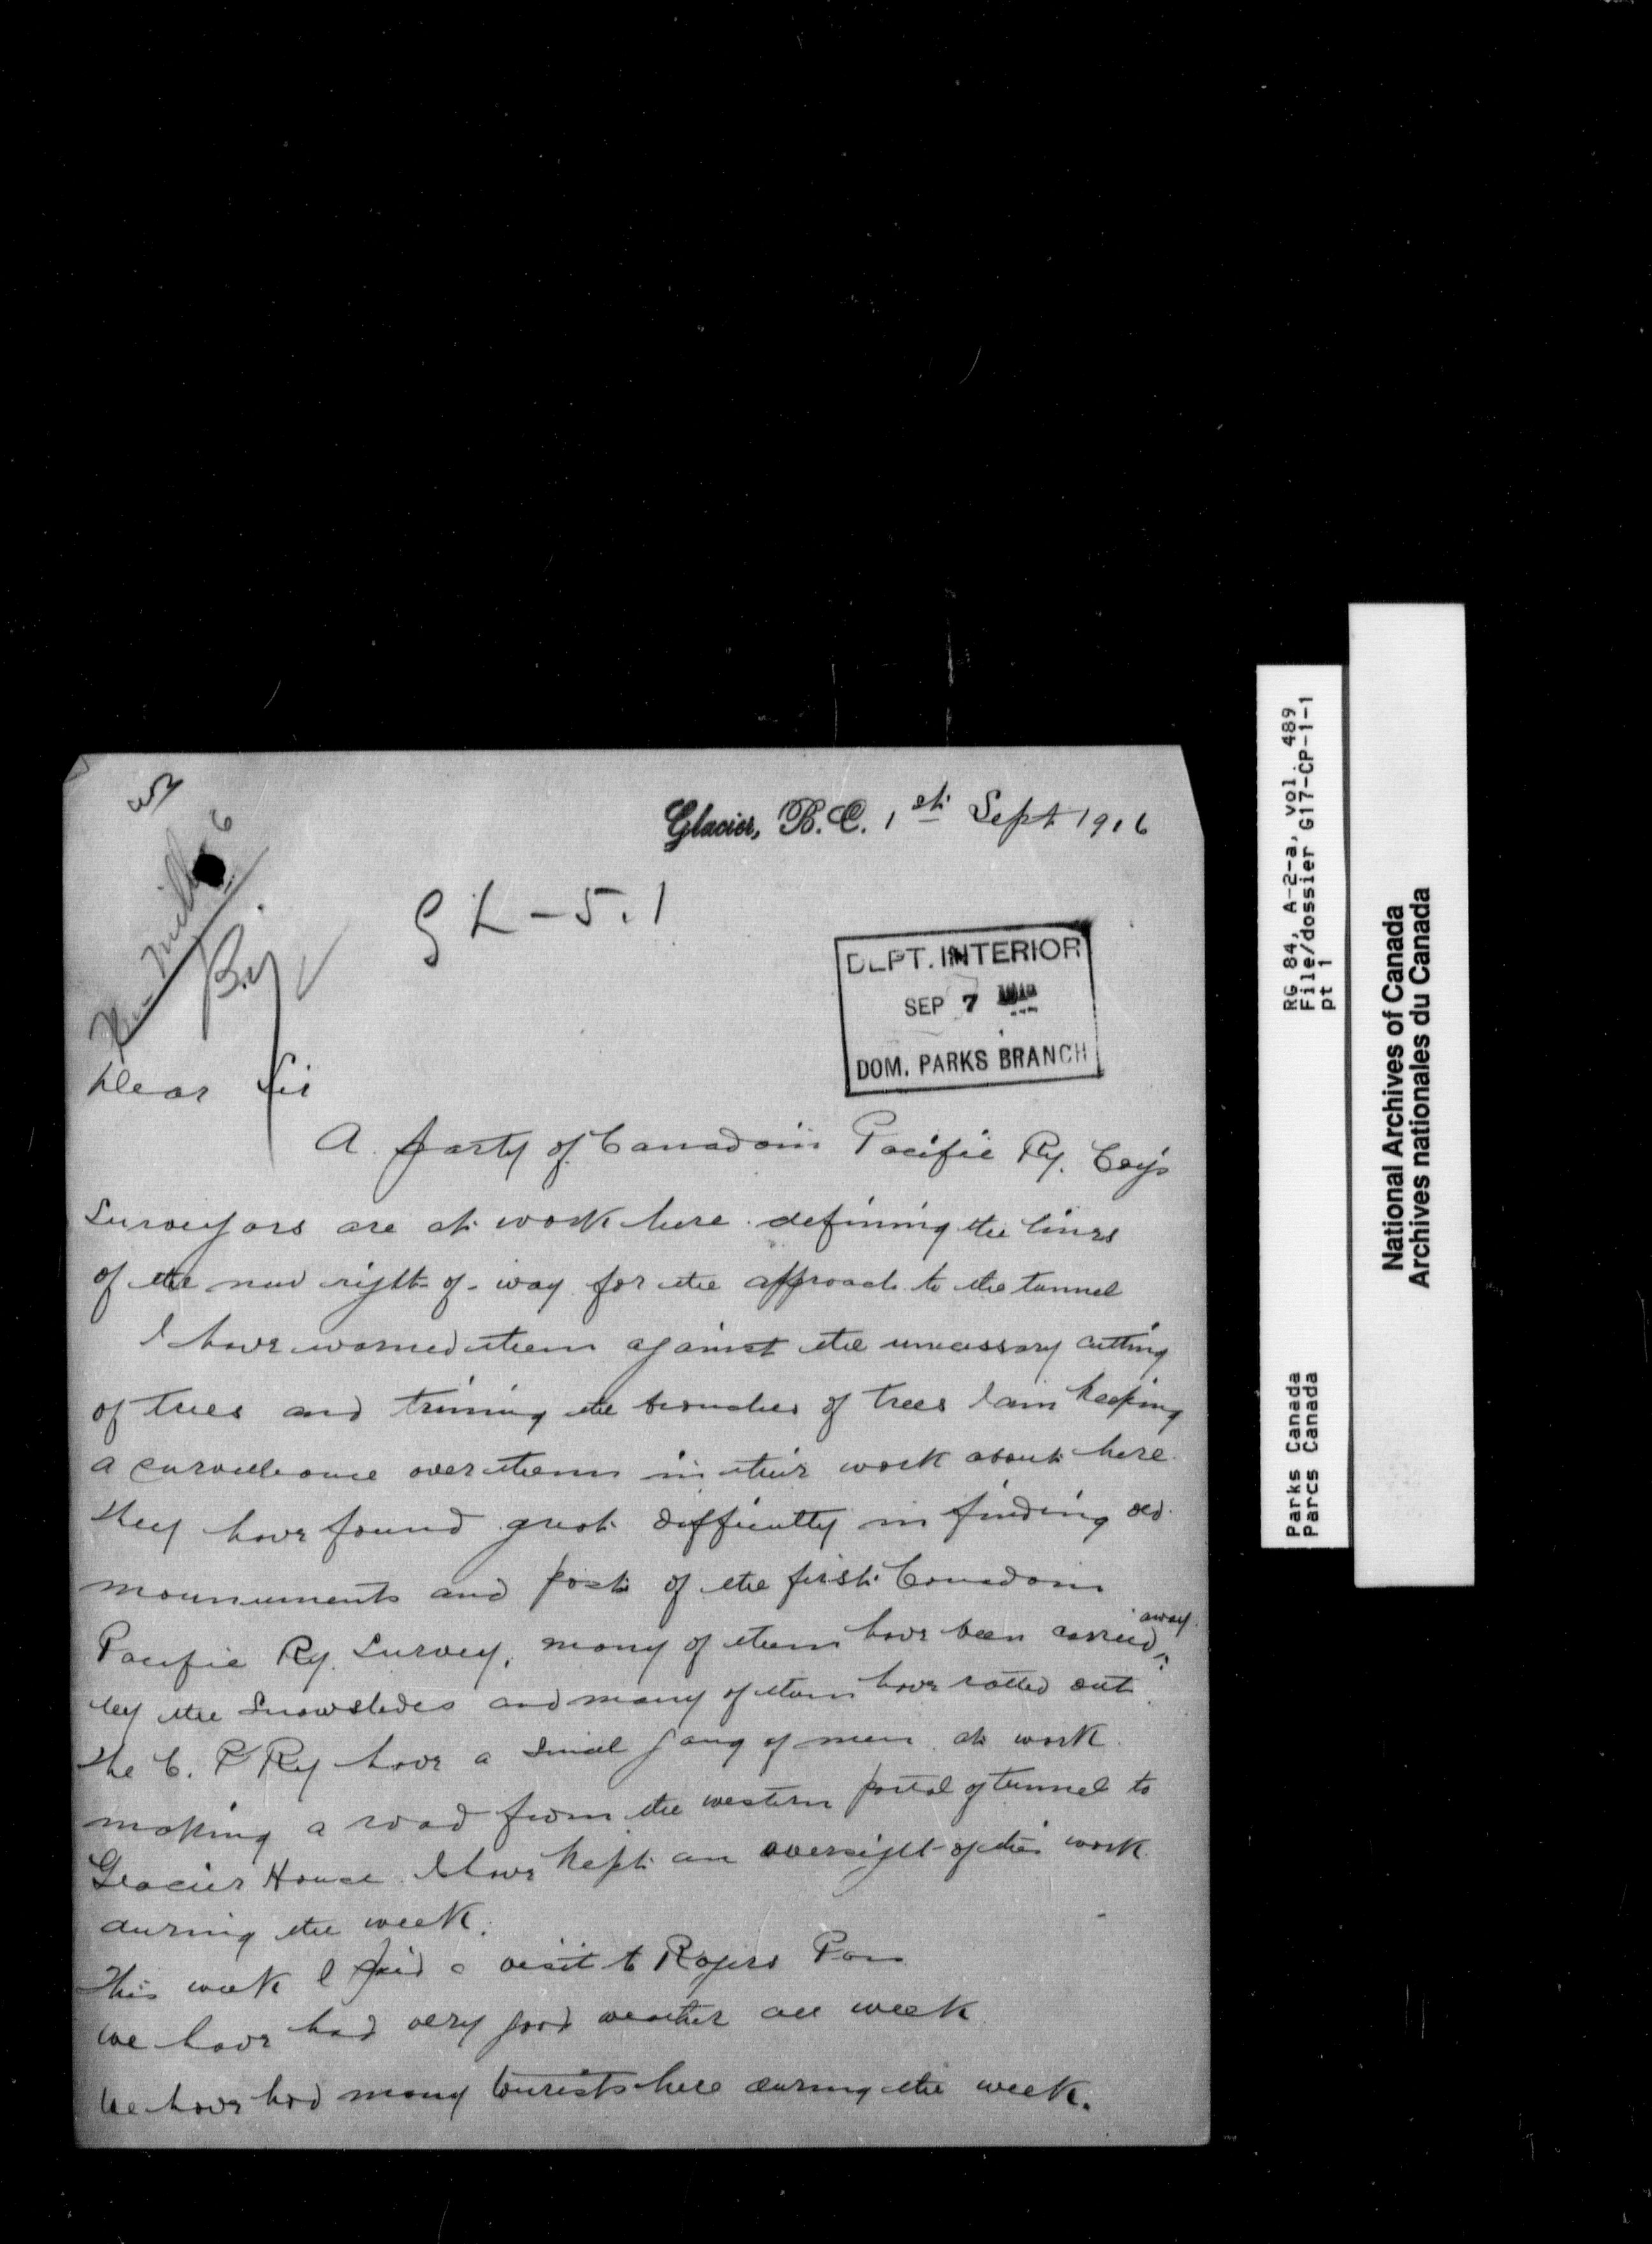 Glacier, B.C. 1st Sept 1916
GL-5.1
DEPT. INTERIOR
SEP 7
DOM. PARKS BRANCH
Dear Sir
A party of Canadain Pacific Ry. Coy's
Surveyors are at work here defining the lines
of the new right of way for the approach to the tunnel
I have warned them against the unecssary cutting
of trees and triming the branches of trees I am keeping
a surveilance over them in their work about here.
they have found great difficulty in finding old
mounuments and posts of the first Canadain
Pacific Ry. Survey, many of them have been carried away
by the Snowslides and many of them have rotted out.
the C. P Ry have a small gang of men at work
making a road from the western portal of tunnel to
Glacier House I have kept an oversight of this work
during the week.
This week I paid a visit to Rogers Pass
we have had very good weather all week
We have had many tourists here during the week.
RG 84, A-2-a, vol. 489
File/dossier G17-CP-1-1
pt 1
Parks Canada
Parcs Canada
National Archives of Canada
Archives nationales du Canada